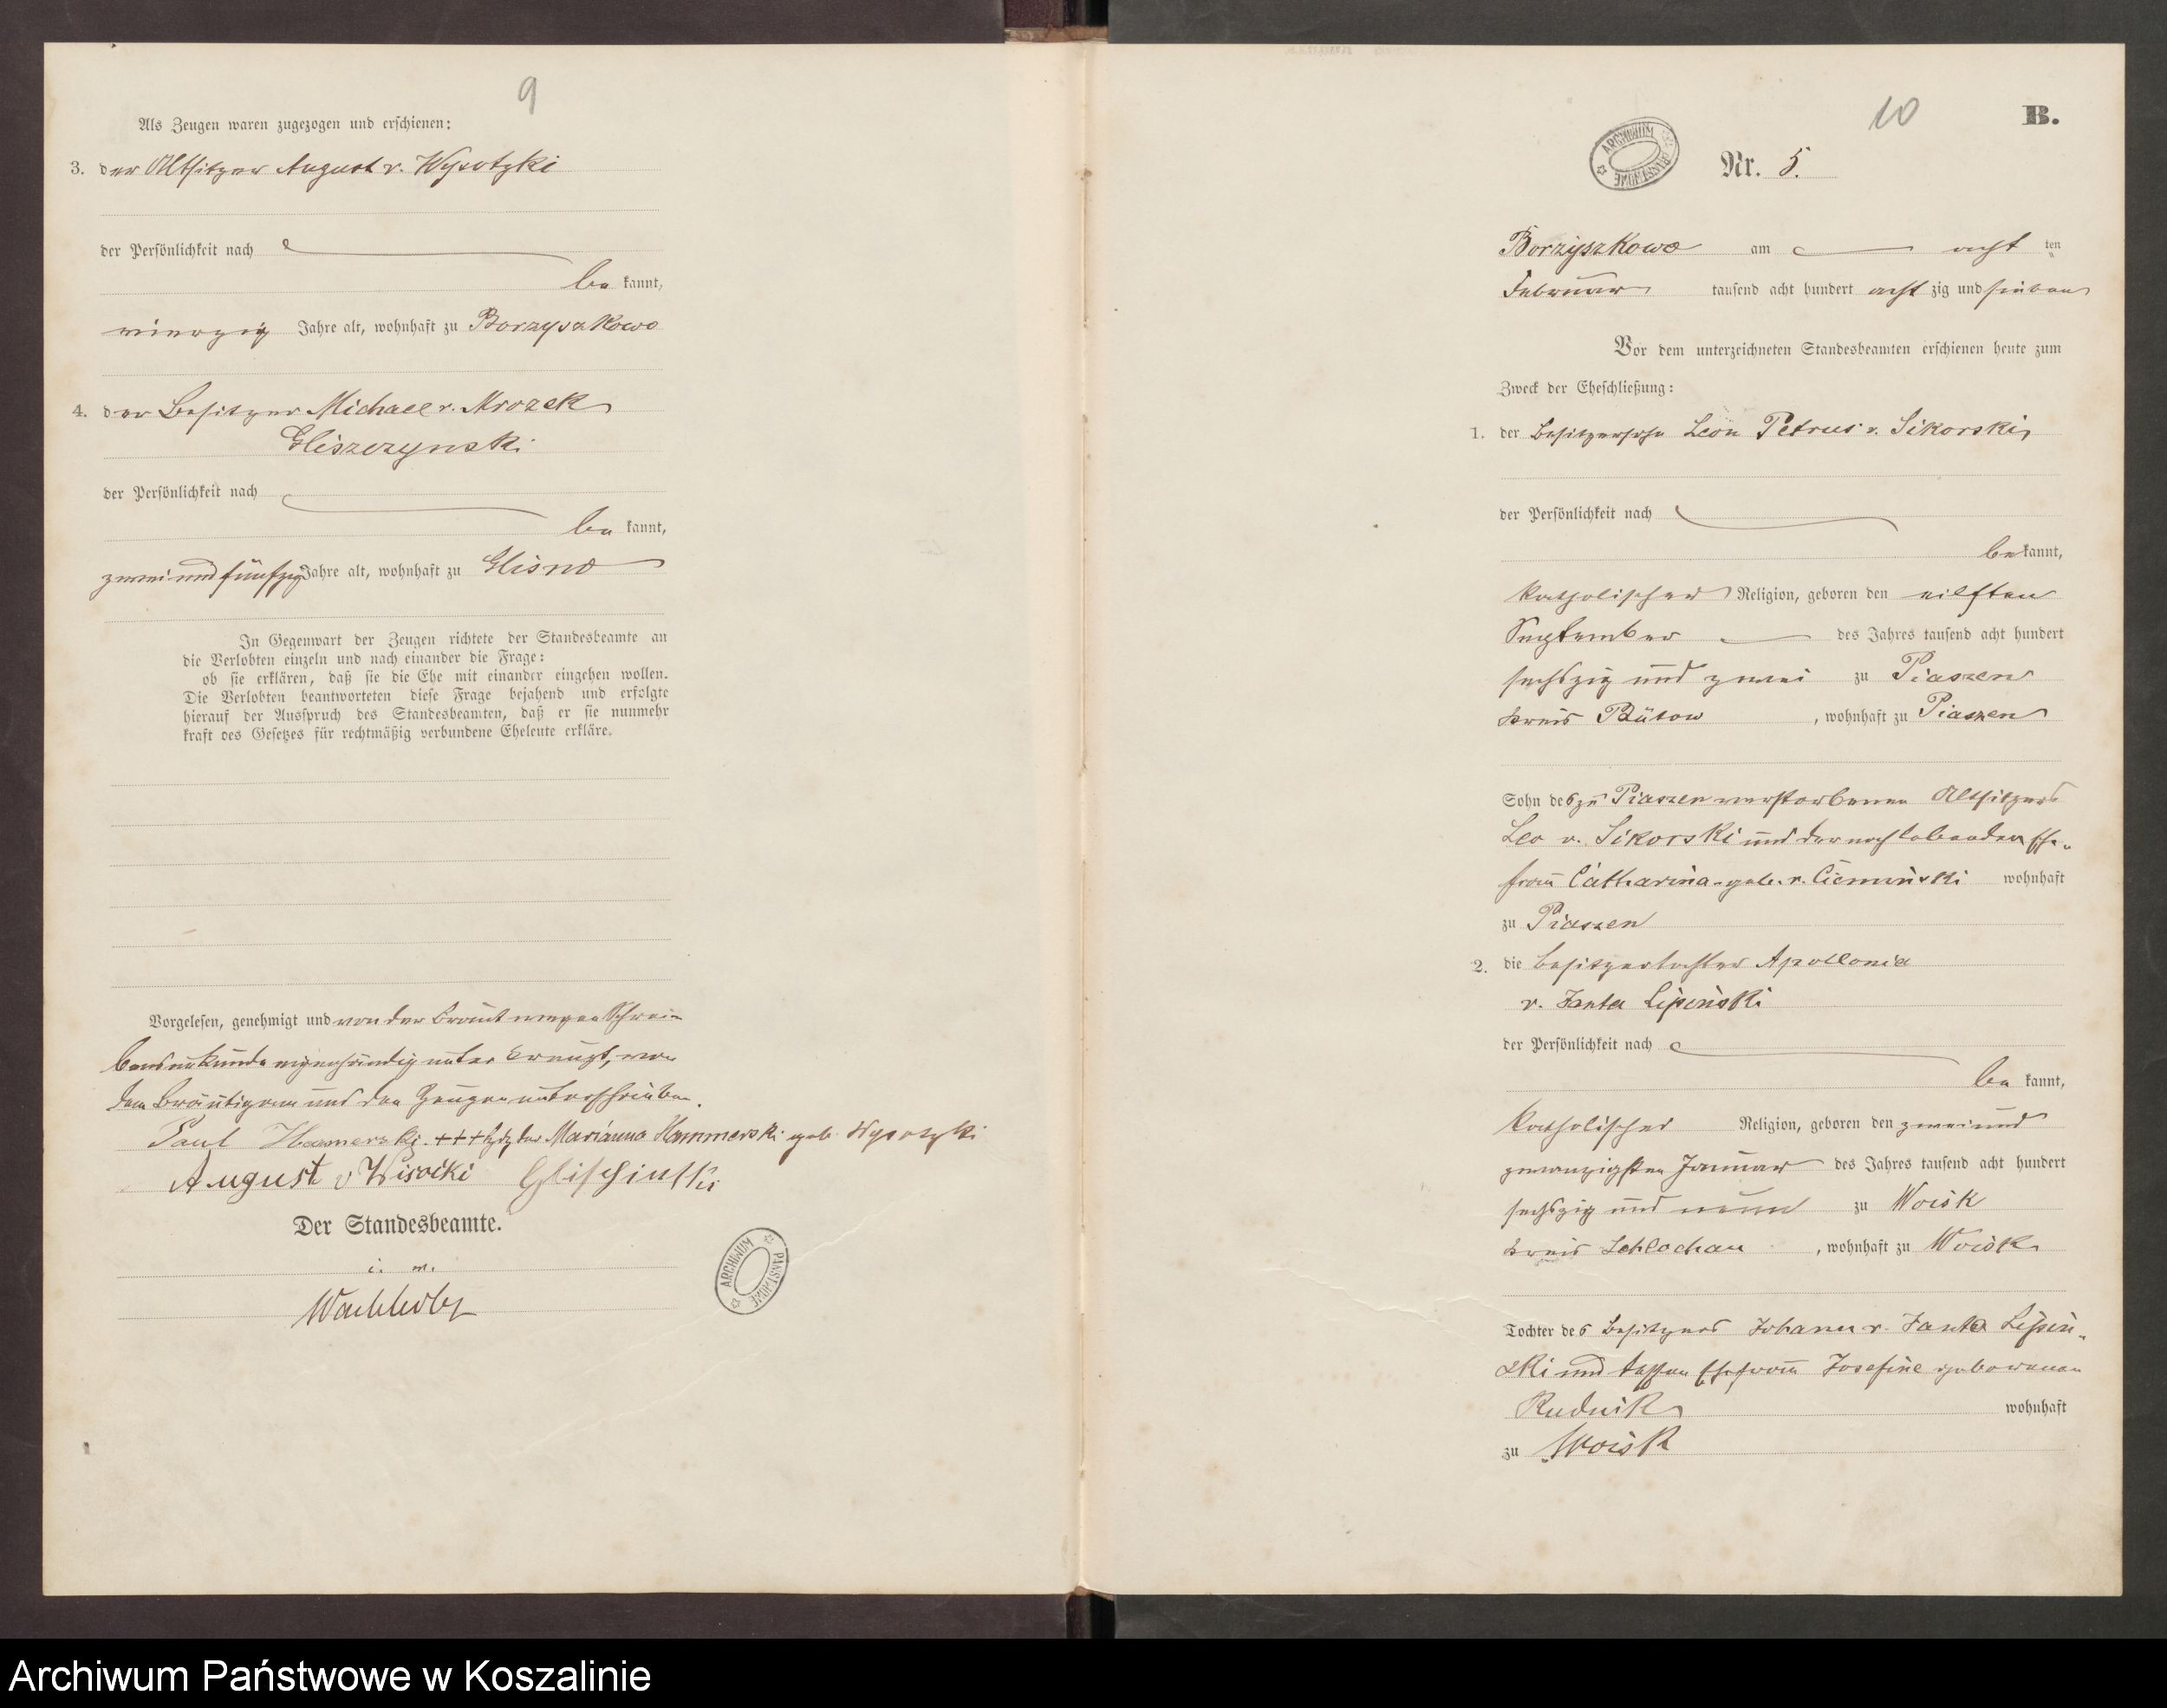 9
Als Zeugen waren zugezogen und erschienen:
3. der Altsitzer August v. Wysotzki
der Persönlichkeit nach
be kannt,
vierzig Jahre alt, wohnhaft zu Borzyszkowo
4. der Besitzer Michael v. Mrozek
Gliszczynski
der Persönlichkeit nach
be kannt,
zwei und fünfzig Jahre alt, wohnhaft zu Glisno
In Gegenwart der Zeugen richtete der Standesbeamte an
die Verlobten einzeln und nach einander die Frage:
ob sie erklären, daß sie die Ehe mit einander eingehen wollen.
Die Verlobten beantworteten diese Frage bejahend und erfolgte
hierauf der Ausspruch des Standesbeamten, daß er sie nunmehr
kraft des Gesetzes für rechtmäßig verbundene Eheleute erkläre.
Vorgelesen, genehmigt und von der Braut wegen Schrei-
bensunkunde eigenhändig unter kreuzt, von
dem Bräutigam und den Zeugen unterschrieben.
Paul +++ Marianna Hammerski geb. Wysotzki
August v Wisocki Glischinski
Der Standesbeamte.
i. V.
ARCHIWUM PAŃSTWOWE
10
B.
ARCHIWUM PAŃSTWOWE
Nr. 5.
Borzyszkowo am acht ten
Februar tausend acht hundert acht zig und sieben
Vor dem unterzeichneten Standesbeamten erschienen heute zum
Zweck der Eheschließung:
1. der Besitzersohn Leon Petrus v. Sikorski,
der Persönlichkeit nach
be kannt,
katholischer Religion, geboren den eilften
September des Jahres tausend acht hundert
sechszig und zwei zu Piaszen
Kreis Bütow , wohnhaft zu Piaszen
Sohn des zu Piaszen verstorbenen Altsitzers
Leo v. Sikorski und der noch lebenden Ehe-
frau Catharina geb. v. Cieminski wohnhaft
zu Piaszen
2. die Besitzertochter Apollonia
v. Janta Lipinski
der Persönlichkeit nach
be kannt,
katholischer Religion, geboren den zwei und
zwanzigsten Januar des Jahres tausend acht hundert
sechszig und neun zu Woisk
Kreis Schlochau , wohnhaft zu Woisk
Tochter des Besitzers Johann v. Janta Lipin-
ski und dessen Ehefrau Josefine geborenen
Rudnik wohnhaft
zu Woisk
Archiwum Państwowe w Koszalinie